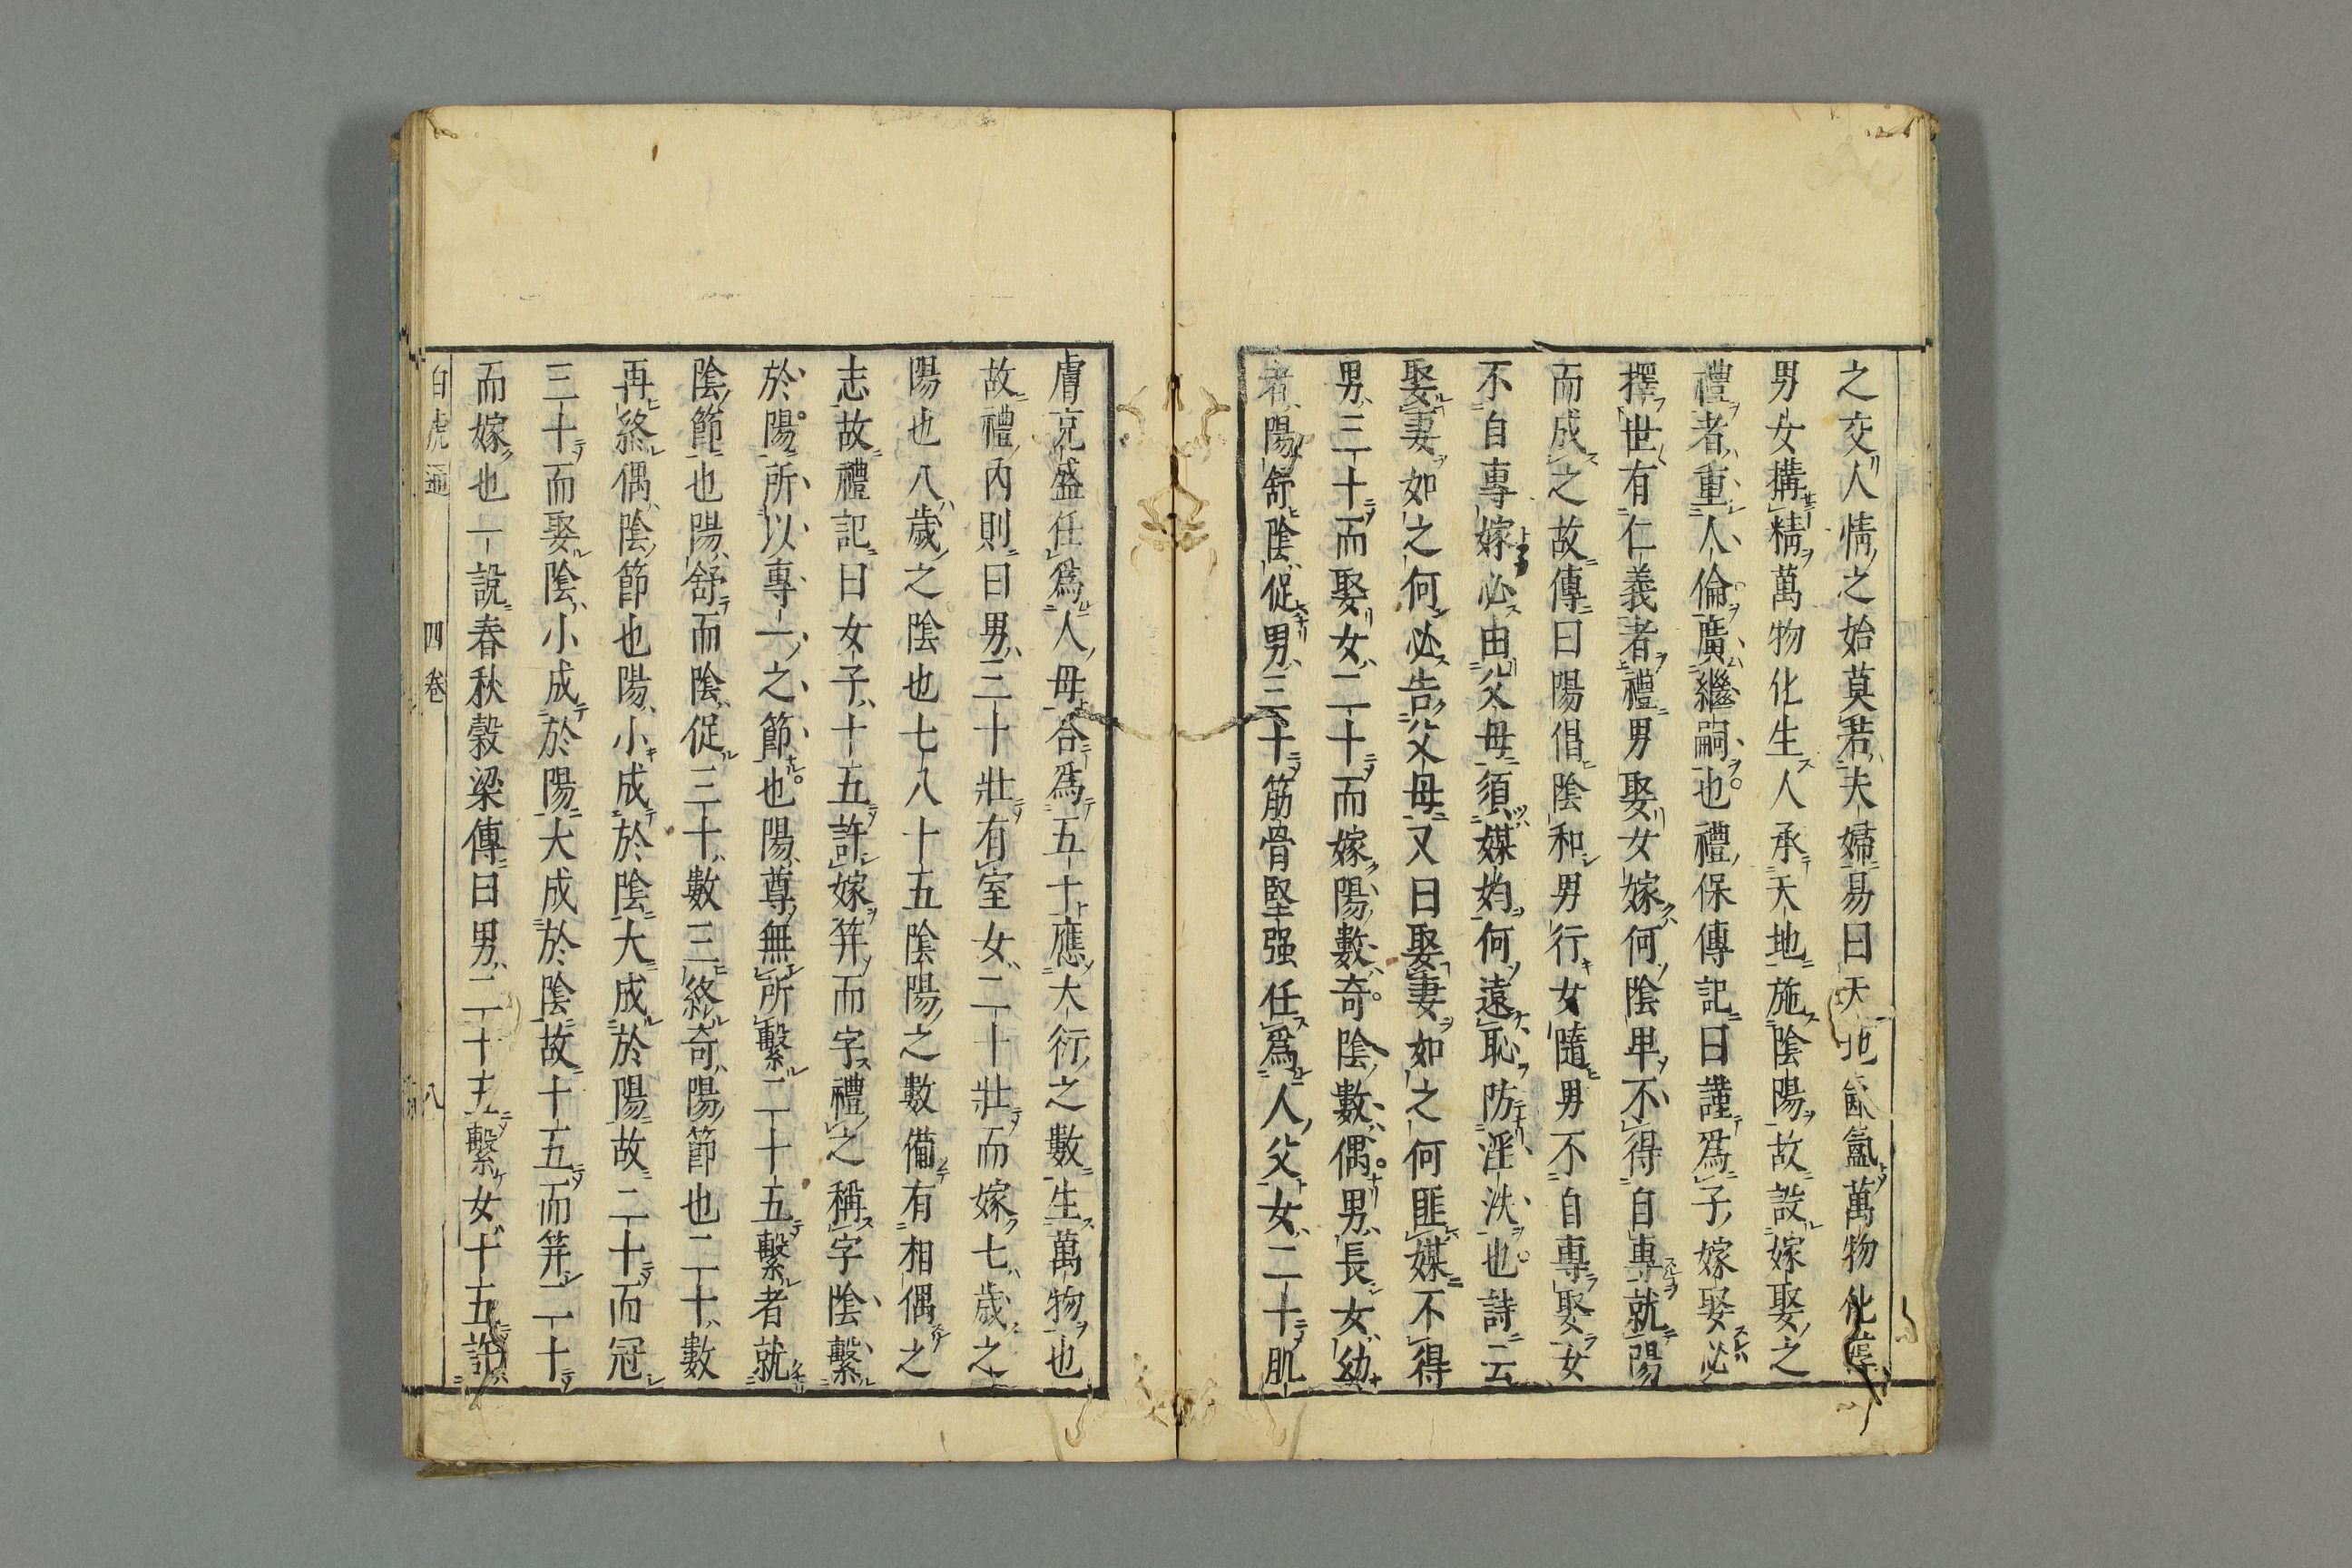 之交人情之始莫若夫婦易曰天地氤氳萬物化淳
男女構精萬物化生人承天地施陰陽故設嫁娶之
禮者重人倫廣繼嗣也禮保傅記曰謹爲子嫁娶必
擇世有仁義者禮男娶女嫁何陰卑不得自專就陽
而成之故傳曰陽倡陰和男行女隨男不自專娶女
不自專嫁必由父母須媒妁何遠恥防淫泆也詩云
娶妻如之何必告父母又曰娶妻如之何匪媒不得
男三十而娶女二十而嫁陽數奇陰數偶男長女幼
者陽舒陰促男三十筋骨堅强任爲人父女二十肌
膚充盛任爲人母合爲五十應大衍之數生萬物也
故禮內則曰男三十壯有室女二十壯而嫁七歲之
陽也八歲之陰也七八十五陰陽之數備有相偶之
志故禮記曰女子十五許嫁笄而字禮之稱字陰繫
於陽所以專一之節也陽尊無所繫二十五繫者就
陰節也陽舒而陰促三十數三終奇陽節也二十數
再終偶陰節也陽小成於陰大成於陽故二十而冠
三十而娶陰小成於陽大成於陰故十五而笄二十
而嫁也一說春秋穀梁傳曰男二十五繫女十五許
白虎通 四卷 八